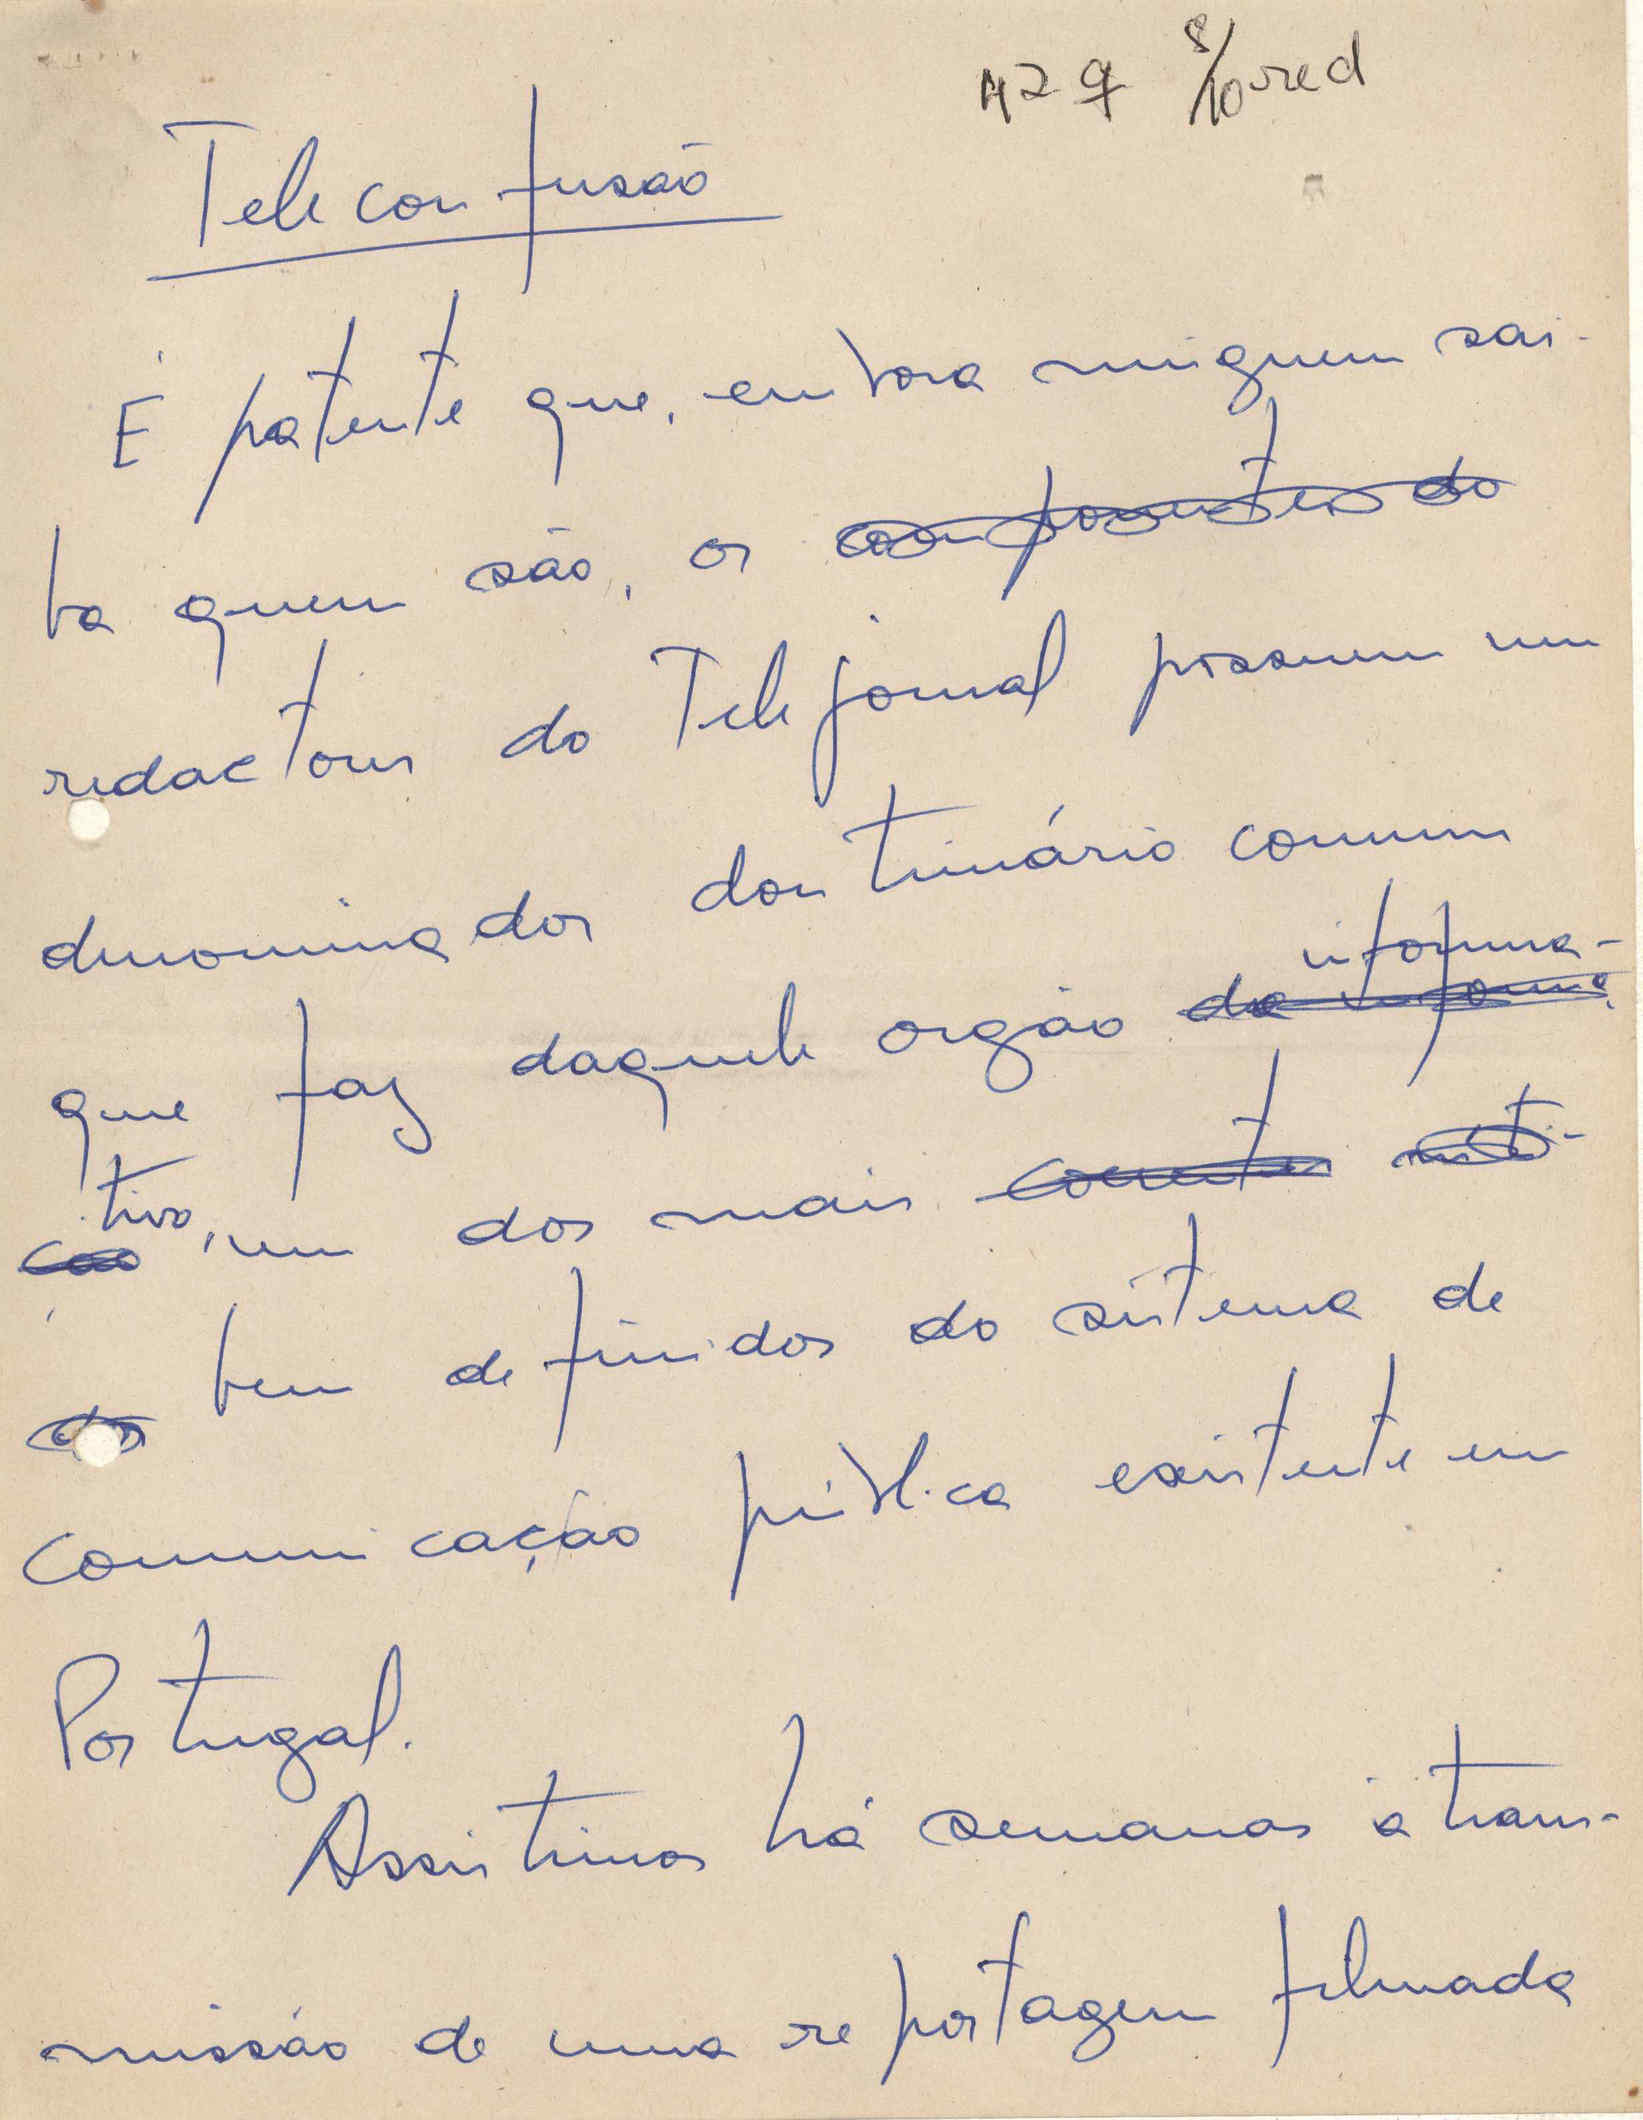 8/10 red
Teleconfusão
É patente que, embora ninguem sai-
ba quem são, os componentes do
redactores do Telejornal possuem um
denominador doutrinário comum
informa-
que faz daquele orgão de informa
tivo, um dos mais coerentes
ção
bem definidos do sistema de
do
comunicação pública existente em
Portugal.
Assistimos há semanas à trans-
missão de uma reportagem filmada